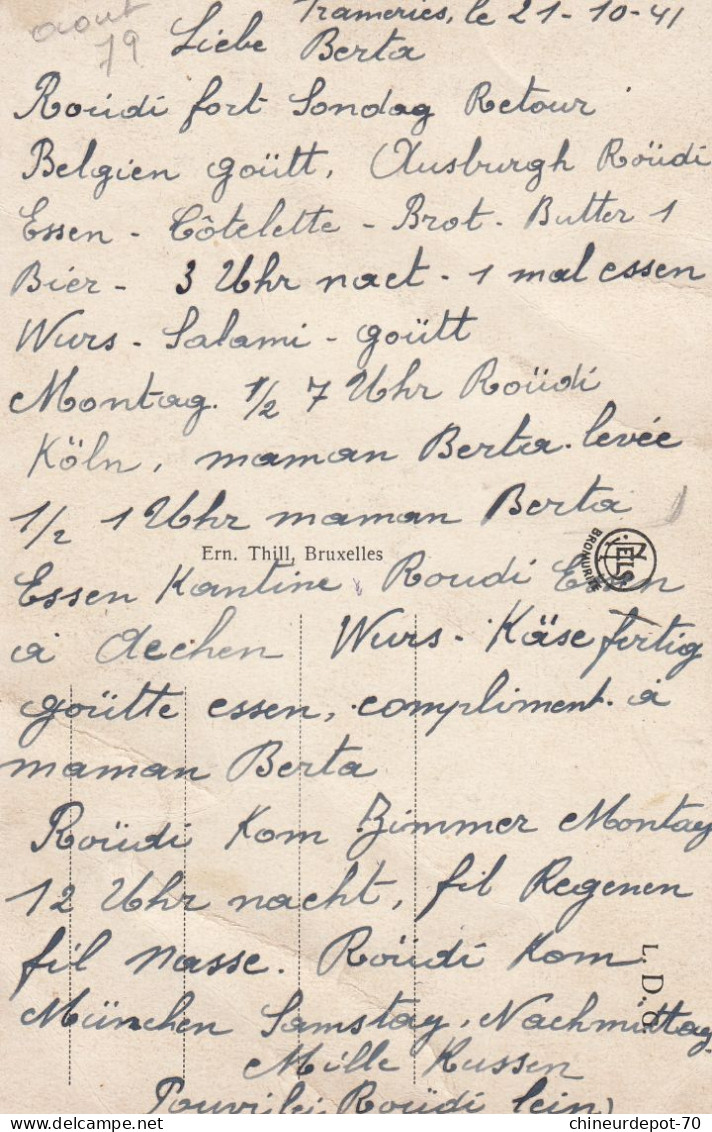 août
79
Frameries, le 21-10-41
Liebe Berta
Roüdi fort Sondag Retour
Belgien goütt, Ausburgh Roüdi
Essen - Côtelette - Brot - Butter 1
Bier - 3 Uhr nact - 1 mal essen
Wurs - Salami - goütt
Montag. 1/2 7 Uhr Roüdi
Köln, maman Berta levée
1/2 1 Uhr maman Berta
Ern. Thill, Bruxelles
NELS
BROMURITE
Essen Kantine Roudi
à Aechen Wurs - Käse fertig
goütte essen, compliment à
maman Berta
Roüdi Kom Zimmer Montag
12 Uhr nacht, fil Regenen
fil nasse. Roüdi Kom
L. D. O.
München Samstag, Nachmüttag
Mille Kussen
Roüdi
chineurdepot-70